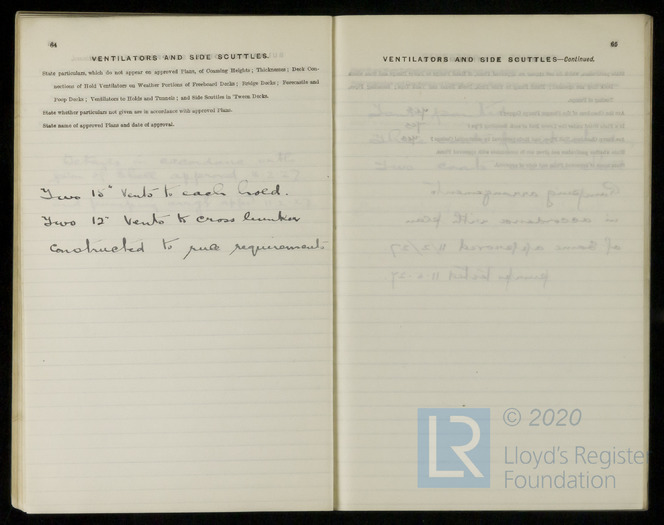 64
VENTILATORS AND SIDE SCUTTLES.
State particulars, which do not appear on approved Plans, of Coaming Heights; Thicknesses; Deck Con-
nections of Hold Ventilators on Weather Portions of Freeboard Decks; Bridge Decks; Forecastle and
Poop Decks; Ventilators to Holds and Tunnels; and Side Scuttles in 'Tween Decks.
State whether particulars not given are in accordance with approved Plans.
State name of approved Plans and date of approval.
Two 18" Vents to each hold.
Two 12" Vents to cross bunker
Constructed to rule requirements
65
VENTILATORS AND SIDE SCUTTLES—Continued.
LR
© 2020
Lloyd's Register
Foundation